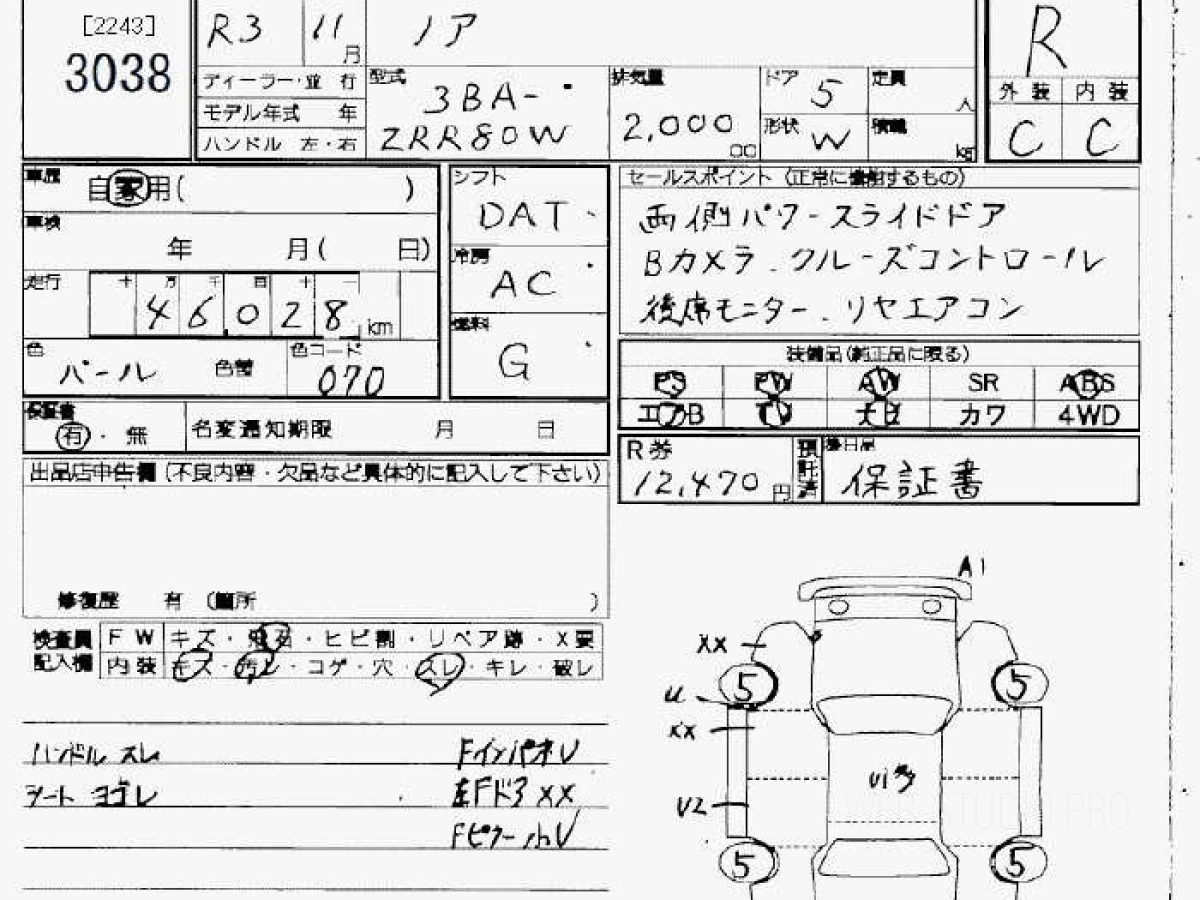 [2243]
3038
R3 11月
ノア
R
ディーラー・並 行
モデル年式 年
ハンドル 左・右
型式
3BA-
ZRR80W
排気量
2,000
cc
ドア 5
定員 人
形状 W
積載 kg
外装 内装
C C
車歴
自家用( )
車検
年 月( 日)
走行
十 万 千 百 十 一
46028 km
色
パール
色替
色コード
070
シフト
DAT
冷房
AC
燃料
G
セールスポイント (正常に機能するもの)
両側パワースライドドア
Bカメラ.クルーズコントロール
後席モニター.リヤエアコン
装備品(純正品に限る)
PS PW AW SR ABS
エアB TV ナビ カワ 4WD
保証書
有・無
名変通知期限 月 日
R券
12,470円
預託済
後日品
保証書
出品店申告欄(不良内容・欠品など具体的に記入して下さい)
修復歴 有 (箇所 )
検査員
記入欄
FW キズ・飛石・ヒビ割・リペア跡・X要
内装 キズ・汚レ・コゲ・穴・スレ・キレ・破レ
ハンドル スレ
シート ヨゴレ
FインパネU
左Fドア XX
FピラーhU
A1
XX
5 5
U
XX
U1多
U2
5 5
WEB STUDIO.PRO